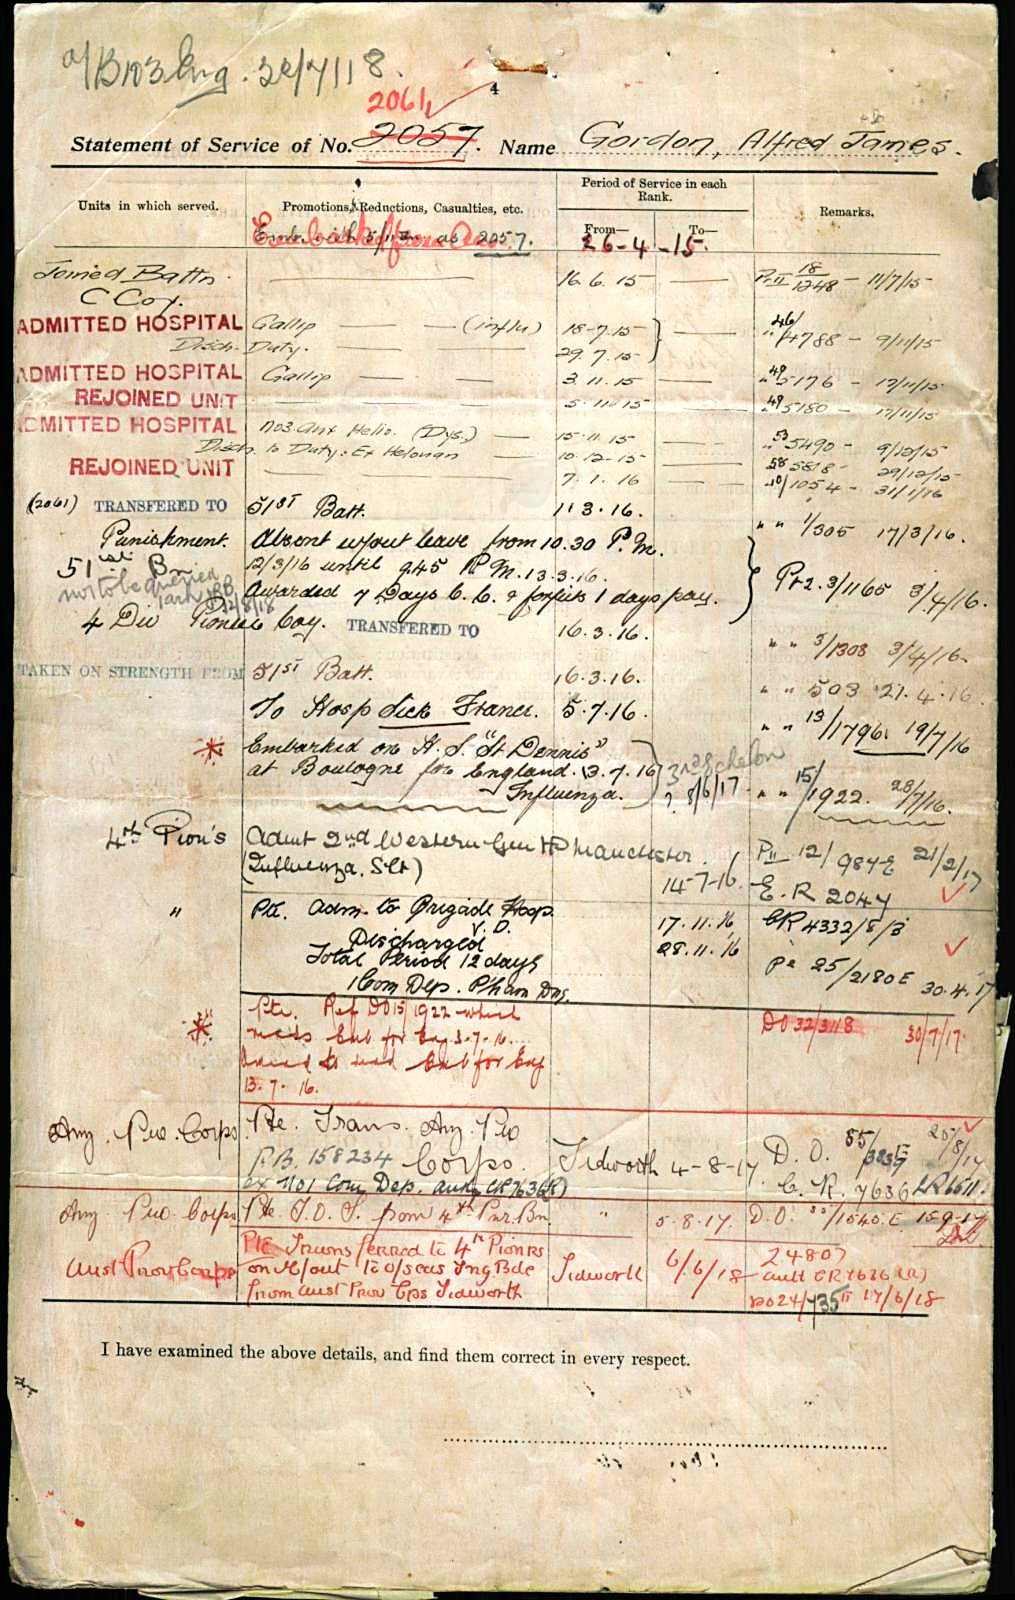 2061
4
Statement of Service of No. 2057. Name Gordon, Alfred James.
Units in which served. Promotions, Reductions, Casualties, etc. Period of Service in each Rank. Remarks.
From— To—
as 2057. 26-4-15.
Joined Battn. 16.6.15 Pt II 18/1248 — 11/7/15
C Coy.
ADMITTED HOSPITAL Gallip — — (influ) 18-7-15 46/4788 — 9/11/15
Disch. Duty. 29.7.15
ADMITTED HOSPITAL Gallip 3.11.15 " 49 5176 — 17/11/15
REJOINED UNIT 5.11.15 " 49 5180 — 17/11/15
ADMITTED HOSPITAL No3. Aux Helio. (Dys.) — 15.11.15 " 53 5490 — 9/12/15
Disch. to Duty. Ex Helouan 10.12.15 58 5818 — 29/12/15
REJOINED UNIT 7.1.16 " 10/1054 — 31/1/16
(2061) TRANSFERED TO 51ST Batt. 1.3.16. " " 1/305 17/3/16.
Punishment. Absent w/out leave from 10.30 P.M.
51st Bn 12/3/16 until 9.45 P.M. 13.3.16. Pt 2. 3/1165 3/4/16.
not to be queried
Awarded 7 Days C.C. & forfeits 1 days pay.
12/8/18
4 Div Pioneer Coy. TRANSFERED TO 16.3.16. " " 3/1308 3/4/16.
TAKEN ON STRENGTH FROM 51ST Batt. 16.3.16. " " 503 27.4.16
To Hosp Sick France. 5.7.16. " " 13/1796 19/7/16
* Embarked on H.S. "St Dennis"
at Boulogne for England. 13.7.16 8/6/17 " " 15/1922. 28/7/16.
Influenza.
4th Pion's Admt 2nd Western Gen H Manchester. PII 12/984E 21/2/17
(Influenza, Slt) 14-7-16. E.R 2047
" Pte. Adm. to Brigade Hosp 17.11.16 CR 4332/8/3
V.D.
Discharged 28.11.16
Total Period 12 days P2 25/2180E 30.4.17
1 Com Dep. P'ham Dns.
Pte. Ref DO15/1922 which DO 32/3118 30/7/17.
* reads Emb for Eng 3-7-16.
Emb for Eng
13.7.16.
Anz. Pro. Corps Pte. Trans. Anz. Pro Corps. Tidworth 4-8-17 D.O. 55/
P.B. 158234
ex No1 Com Dep. C.R. 7636
Anz Pro Corps Pte. T.O.S. from 4th Pnr. Bn. " 5.8.17. D.O. /1545.E 15.9.17
Aust Prov Corps Pte Transferred to 4th Pionrs Tidworth 6/6/18 24807
on r/out to o/seas Tng Bde
from Aust Prov Cps Tidworth DO24/735 II 17/6/18
I have examined the above details, and find them correct in every respect.